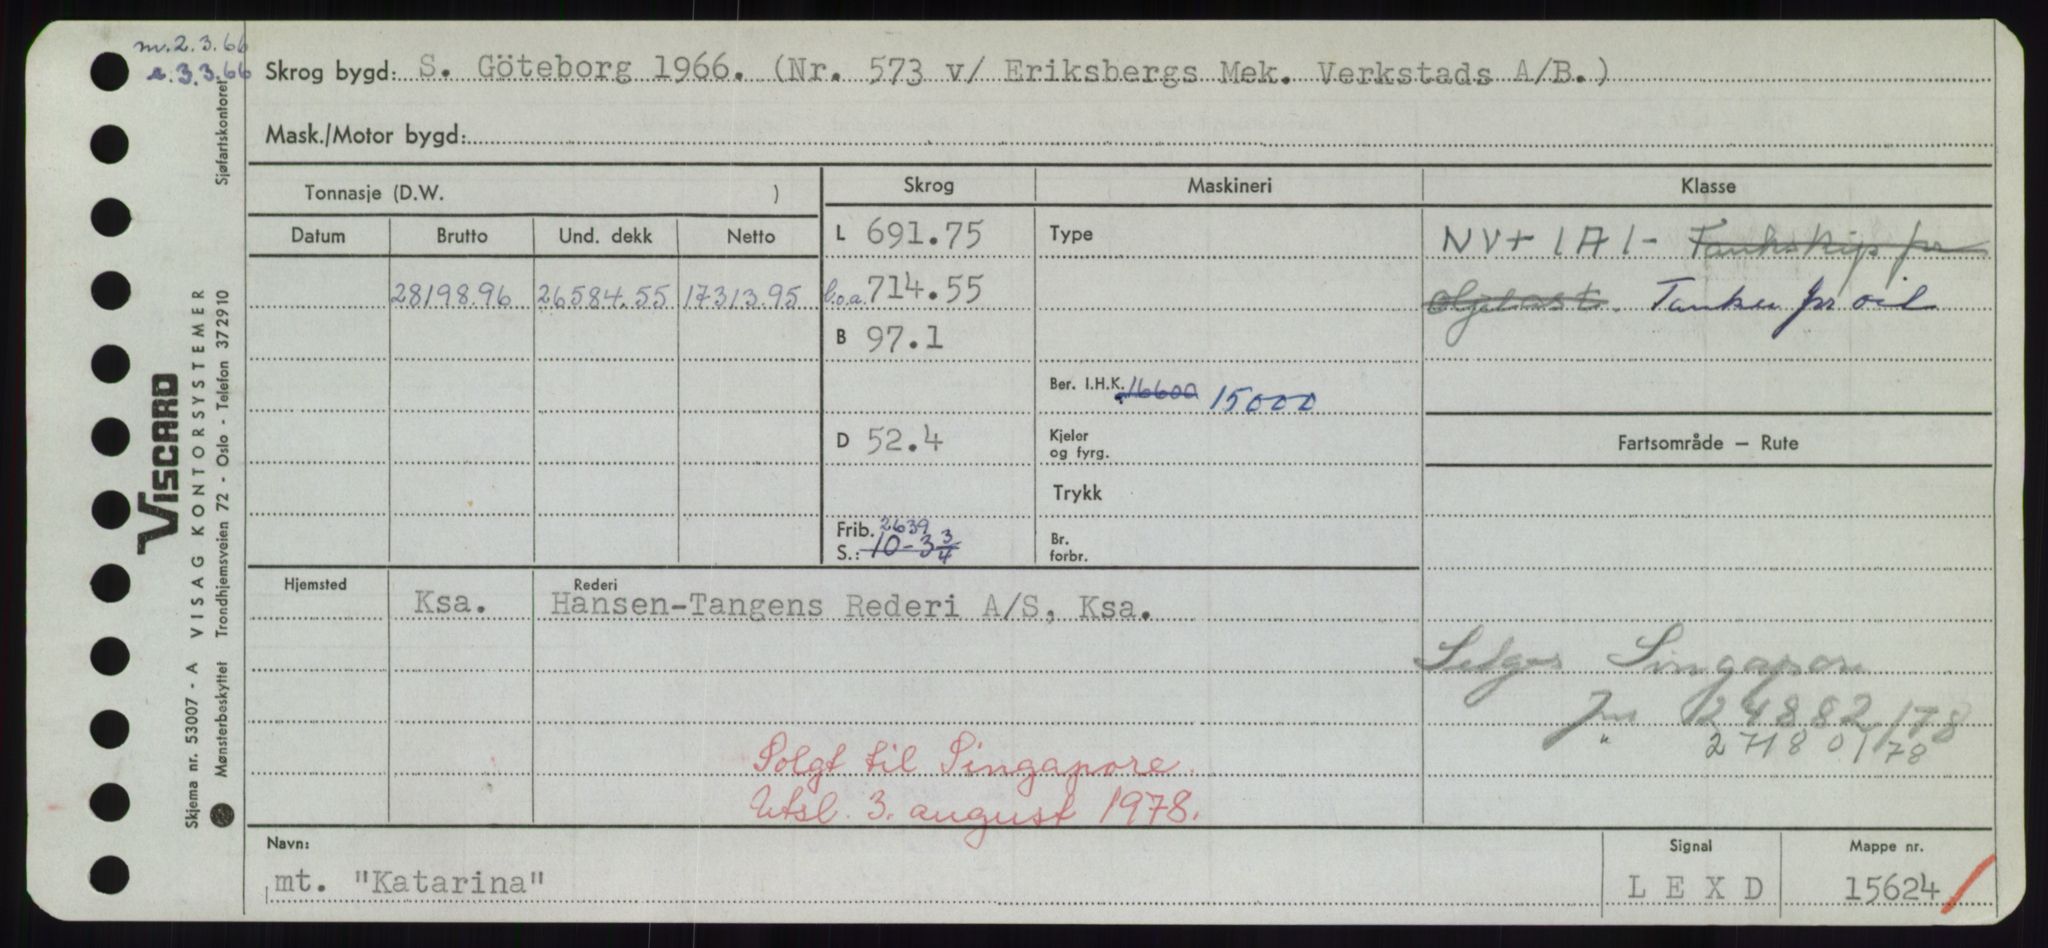 m. 2.3.66
r. 3.3.66
Skrog bygd: S. Göteborg 1966. (Nr. 573 v/ Eriksbergs Mek. Verkstads A/B.)
Mask./Motor bygd:
Tonnasje (D.W. )
Skrog Maskineri Klasse
Datum Brutto Und. dekk Netto
L 691.75 Type NV+ 1A1 - Tankskip for
28198.96 26584.55 17313.95 l.o.a. 714.55 Oljelast. Tanker for oil
B 97.1
Ber. I.H.K. 16600 15000
D 52.4 Kjeler og fyrg. Fartsområde — Rute
Trykk
Frib. 2639
S.: 10-3 3/4 Br. forbr.
Hjemsted Rederi
Ksa. Hansen-Tangens Rederi A/S, Ksa.
Selges Singapore
Jnr 24882/78
" 27180/78
Solgt til Singapore.
Utsl. 3. august 1978.
Navn: Signal Mappe nr.
mt. "Katarina" LEXD 15624
VISCARD
Skjema nr. 53007 - A VISAG KONTORSYSTEMER
Mønsterbeskyttet Trondhjemsveien 72 - Oslo - Telefon 372910 Sjøfartskontoret